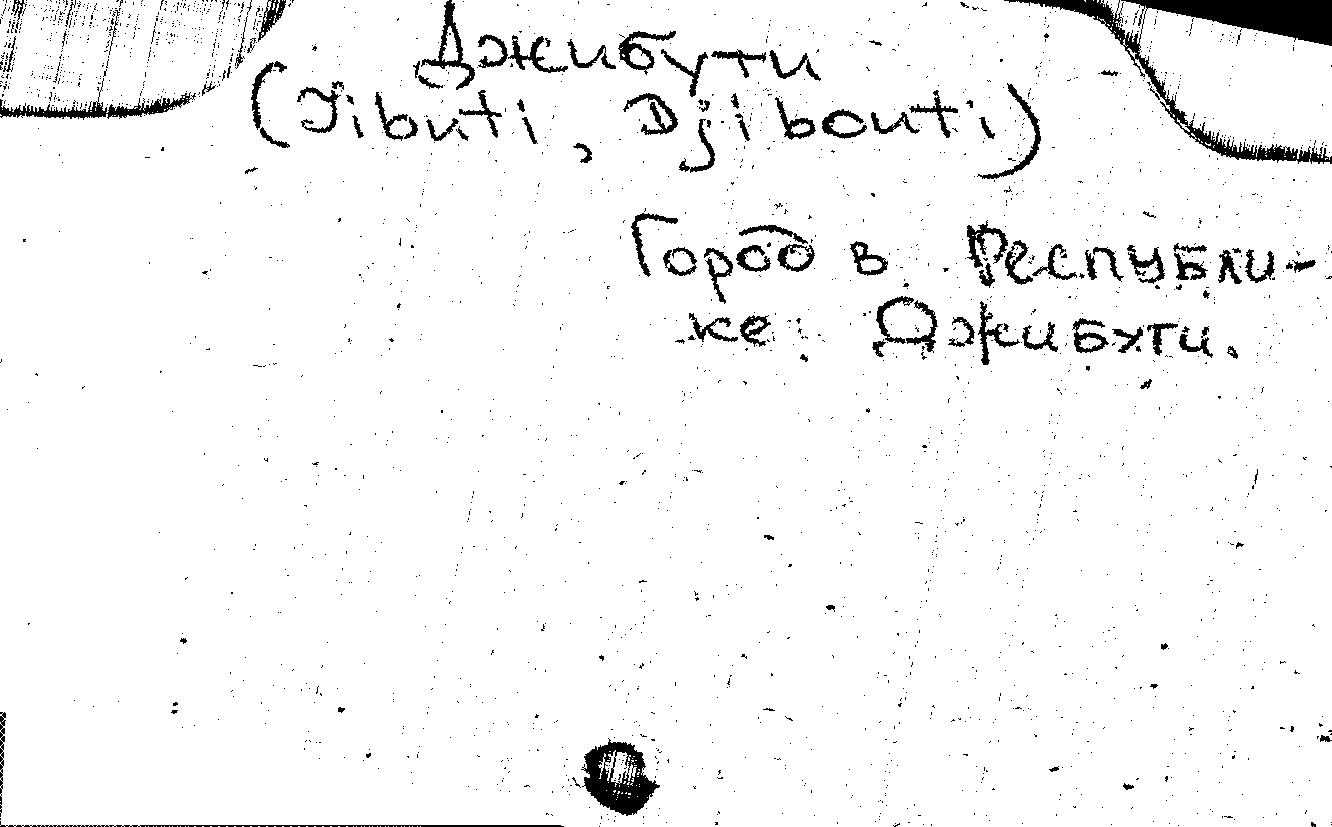 Джибути
(Jibuti, Djibouti)
Город в Республи-
ке Джибути.